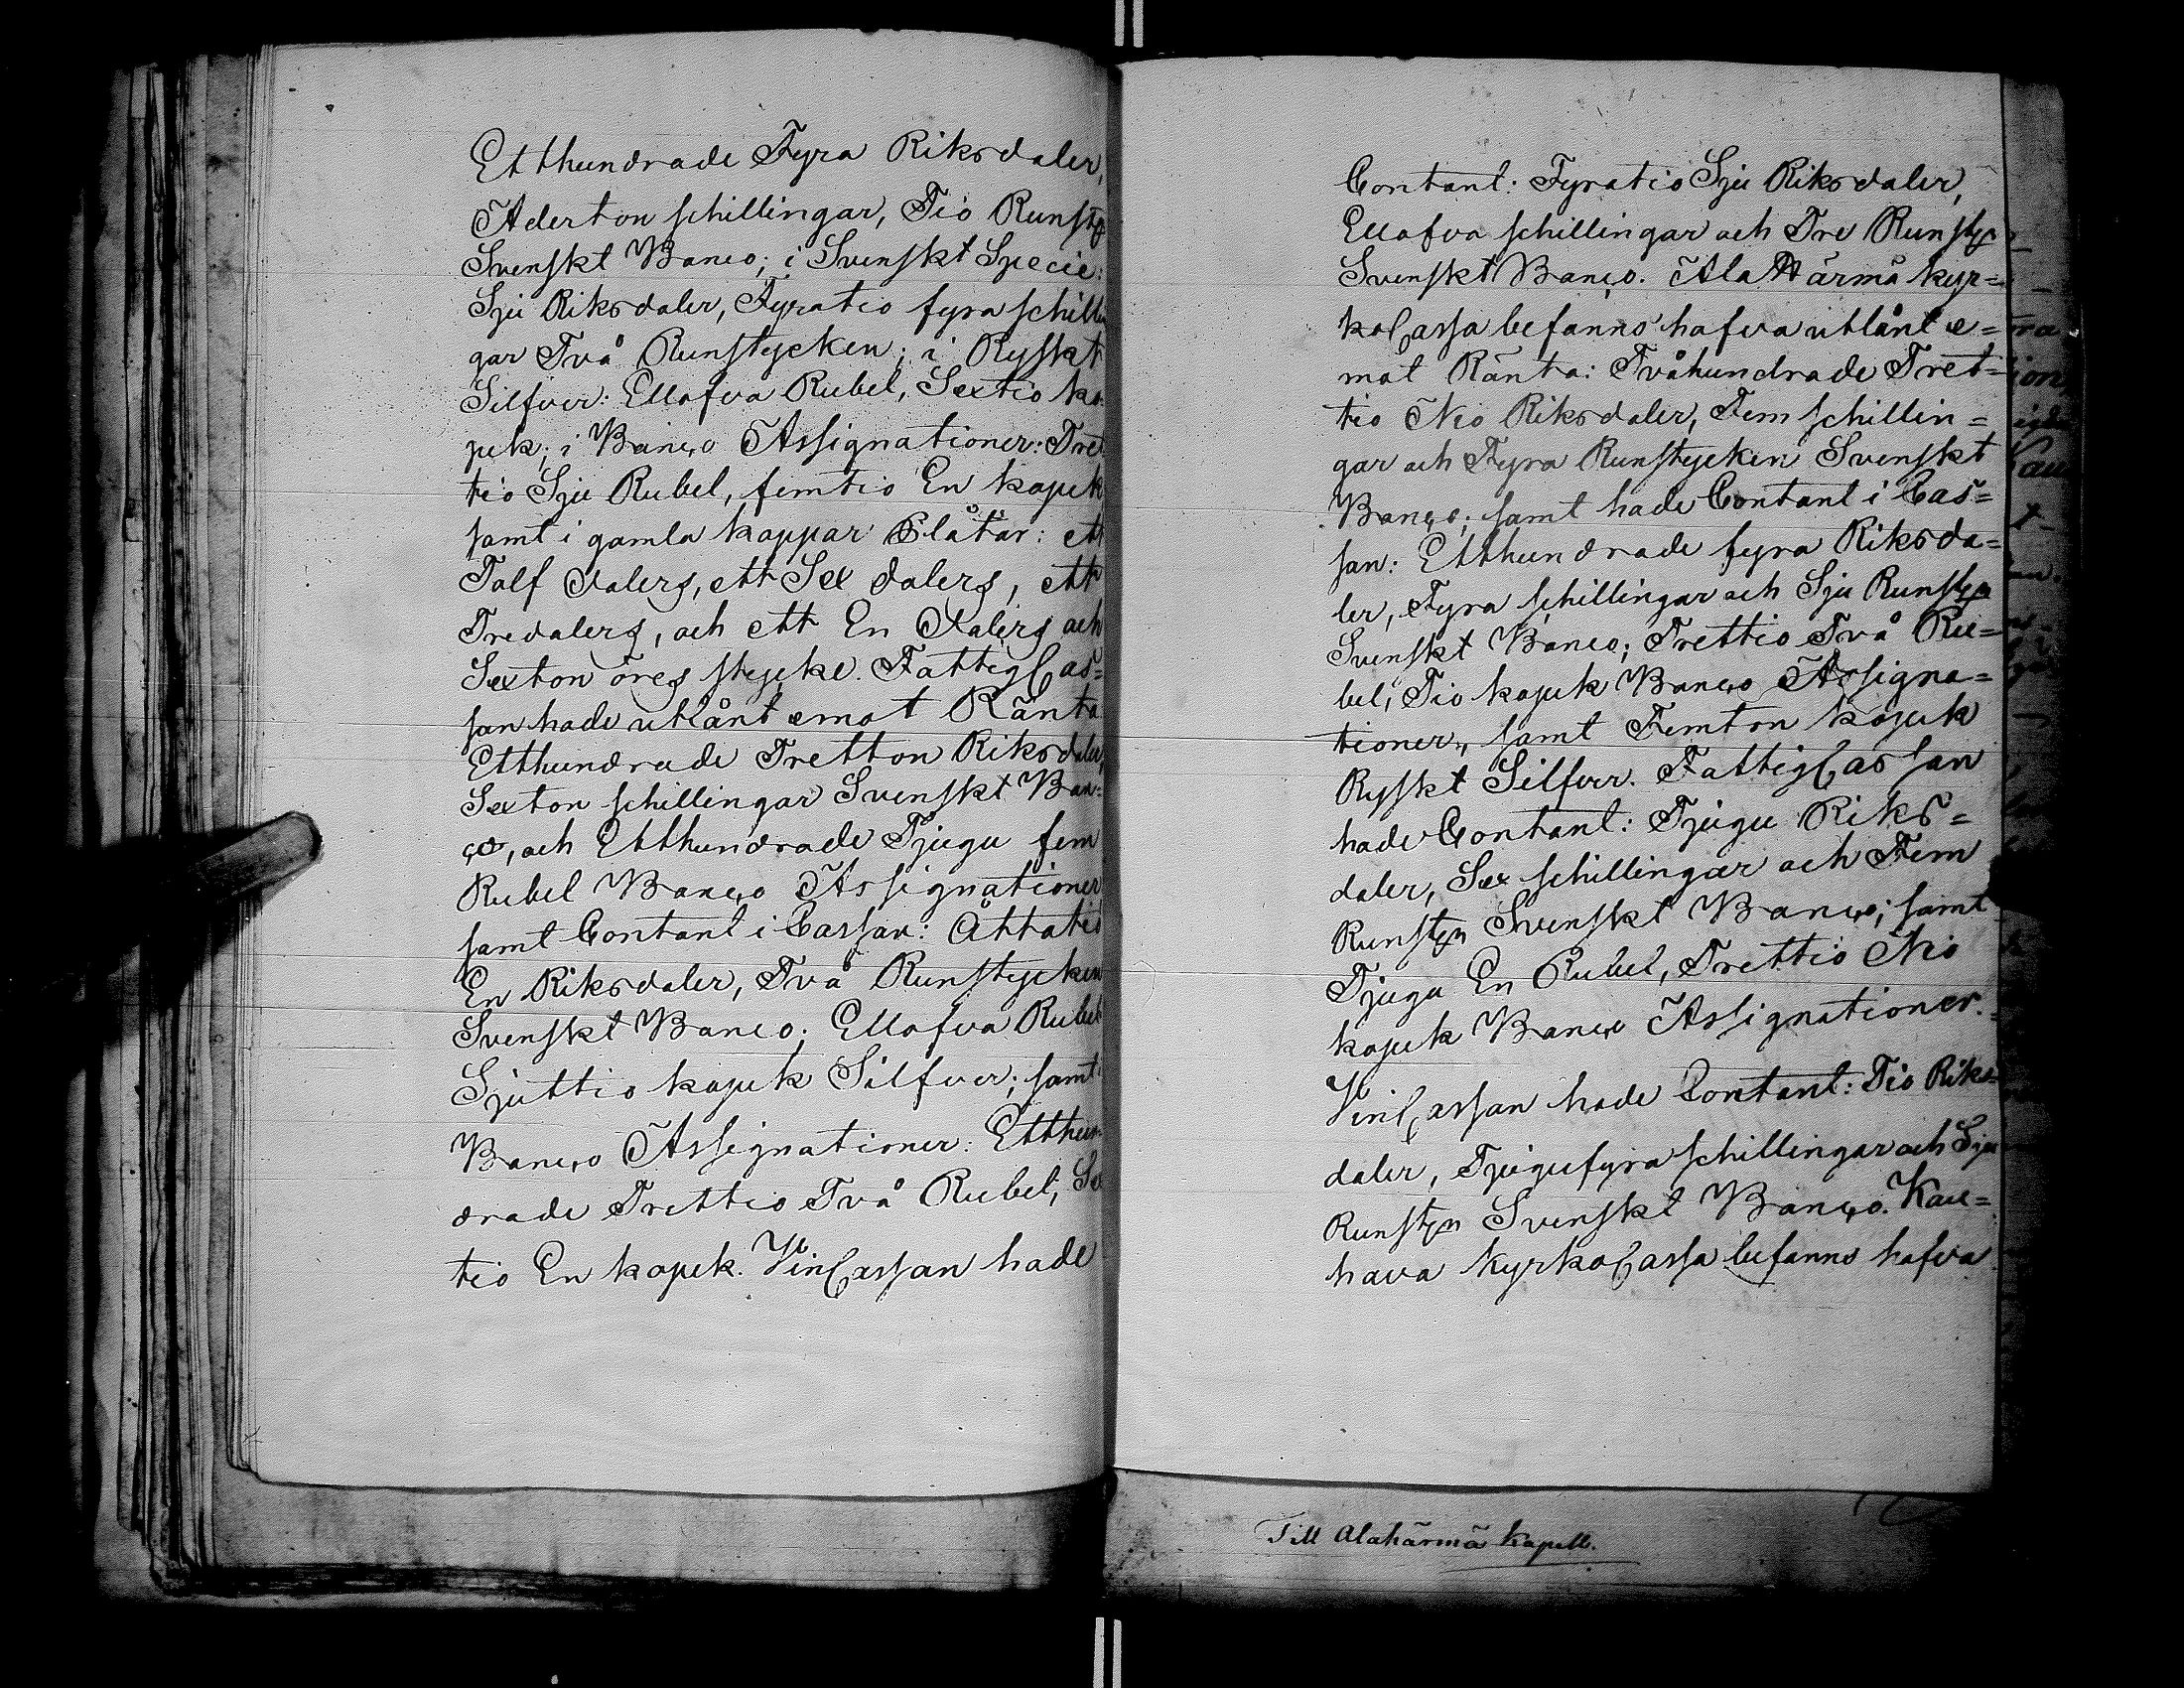 Etthundrade Fyra Riksdaler,
Aderton schillingar, Tio Runst
Svenskt Banco; i Svenskt Specie:
Sju Riksdaler, Fyratio fyra schillin
gar Två Runstycken; i Ryskt
Silfver: Ellofva Rubel, Sextio ko
pek; i Banco Assignationer: Tret
tio Sju Rubel, femtio En kopek
samt i gamla koppar Plåtar: ett
Tolf Dalers, ett Sex dalers, ett
Tredalers, och ett En Dalers och
Sexton öres stycke. FattigCas=
san hade utlånt emot Ränta
Etthundrade Tretton Riksdaler,
Sexton schillingar Svenskt Ban=
co, och Etthundrade Tjugu fem
Rubel Banco Assignationer
samt Contant i Cassan: Åttatio
En Riksdaler, Två Runstycken
Svenskt Banco; Ellofva Rubel
Sjuttio kopek Silfver; samt
Banco Assignationer: Etthun
drade Trettio Två Rubel, Sex
tio En kopek. VinCassan hade
Contant: Fyratio Sju Riksdaler,
Ellofva schillingar och Tre Runst
Svenskt Banco. Ala Härmä kyr=
koCassa befanns hafva utlånt e=
mot Ränta: Tvåhundrade Tret=
tio Nio Riksdaler, Fem schillin=
gar och Fyra Runstycken Svenskt
Banco; samt hade Contant i Cas=
san: Etthundrade fyra Riksda=
ler, Fyra schillingar och Sju Runst
Svenskt Banco; Trettio Två Ru=
bel, Tio kopek Banco Assigna=
tioner, samt Femton kopek
Ryskt Silfver. FattigCassan
hade Contant: Tjugu Riks=
daler, Sex schillingar och Fem
Runst Svenskt Banco; samt
Tjugu En Rubel, Trettio Nio
kopek Banco Assignationer.
VinCassan hade Contant: Tio Riks=
daler, Tjugufyra schillingar och Sju
Runst Svenskt Banco. Kau=
hava KyrkoCassa befanns hafva
Till Alahärmä Kapell.